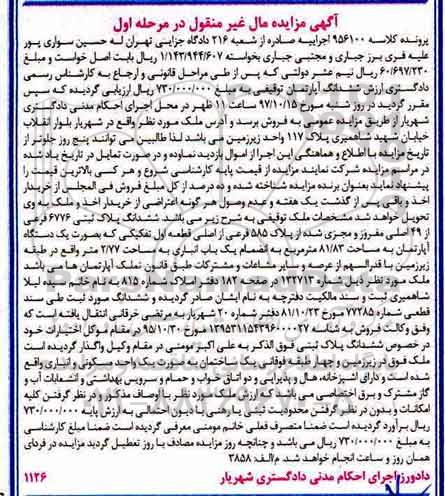 آگهی مزایده مال غیر منقول در مرحله اول
پرونده کلاسه ۹۵۶۱۰۰ اجراییه صادره از شعبه ۲۱۶ دادگاه جزایی تهران له حسین سواری پور
علیه فری برز جباری و مجتبی جباری بخواسته ۱/۱۴۳/۹۴۴/۶۰۷ ریال بابت اصل خواست و مبلغ
۶۰/۶۹۷/۲۳۰ ریال نیم عشر دولتی که پس از طی مراحل قانونی و ارجاع به کارشناس رسمی
دادگستری ارزش ششدانگ آپارتمان توقیفی به مبلغ ۷۳۰/۰۰۰/۰۰۰ ریال ارزیابی گردیده که سپس
مقرر گردید در روز شنبه مورخ ۹۷/۱۰/۱۵ ساعت ۱۱ ظهر در محل اجرای احکام مدنی دادگستری
شهریار از طریق مزایده عمومی به فروش برسد و آدرس ملک مورد نظر واقع در شهریار بلوار انقلاب
خیابان شهید شاهمیری پلاک ۱۱۷ واحد زیرزمین می باشد لذا طالبین می توانند پنج روز جلوتر از
تاریخ مزایده با اطلاع و هماهنگی این اجرا از اموال بازدید نماوده و در صورت تمایل در تاریخ یاد شده
در مراسم مزایده شرکت نمایند مزایده از قیمت پایه کارشناسی شروع و هر کسی بالاترین قیمت را
پیشنهاد نماید بعنوان برنده مزایده شناخته شده و ده درصد از کل مبلغ فروش فی المجلس از خریدار
اخذ و باقی پس از گذشت یک هفته و عدم وصول هر گونه اعتراضی از خریدار اخذ و ملک به وی
تحویل خواهد شد مشخصات ملک توقیفی به شرح زیر می باشد. ششدانگ پلاک ثبتی ۶۷۷۶ فرعی
از ۴۹ اصلی مفروز و مجزی شده از پلاک ۵۸۵ فرعی از اصلی قطعه اول تفکیکی که بصورت یک دستگاه
آپارتمان به مساحت ۸۱/۸۳ مترمربع به انضمام یک باب انباری به مساحت ۲/۷۷ متر واقع در طبقه
زیرزمین با قدرالسهم از عرصه و سایر مشاعات و مشترکات طبق قانون تملک آپارتمان ها می باشد
ملک مورد نظر ذیل شماره ۱۳۲۷۱۳ در صفحه ۱۸۲ دفتر املاک شماره ۸۱۵ به نام خانم سیده لیلا
شاهمیری ثبت و سند مالکیت دفترچه به نام ایشان صادر گردیده و ششدانگ مورد ثبت طی سند
قطعی شماره ۷۷۲۸۵ مورخ ۸۱/۱۰/۲۳ دفتر شماره ۲۰ شهریار به مرتضی خرقانی انتقال یافته است که
وفق وکالت فروش به شناسه ۱۳۹۵۳۱۱۵۴۳۹۶۰۰۰۰۲۷ مورخ ۹۵/۱۰/۳۰ در مقام موکل اختیارات خود
در خصوص ششدانگ پلاک ثبتی فوق الذکر به علی اکبر مومنی در مقام وکیل واگذار گردیده است
ملک فوق در زیرزمین و چهار طبقه فوقانی یک ساختمان به صورت یک واحد مسکونی و انباری واقع
شده است و دارای آشپزخانه، هال و پذیرایی و دو اتاق خواب و حمام و سرویس بهداشتی و انشعابات آب و
گاز مشترک و برق اختصاصی می باشد ارزش ملک مورد نظر با اوصاف مذکور و در نظر گرفتن کلیه
امکانات و بدون در نظر گرفتن محدودیت ثبتی، بازداشتی، رهنی یا دیون احتمالی به ارزش پایه ۷۳۰/۰۰۰/۰۰۰
ریال برآورد گردیده است ضمنا متصرف فعلی خانم مومنی معرفی گردیده است ضمنا مبلغ کارشناسی
به مبلغ ۷۳۰/۰۰۰/۰۰۰ ریال می باشد و چنانچه روز مزایده مصادف با روز تعطیل گردید مزایده در فردای
همان روز و ساعت انجام خواهد شد. م/الف: ۳۸۵۸
دادورز اجرای احکام مدنی دادگستری شهریار ۱۱۲۶